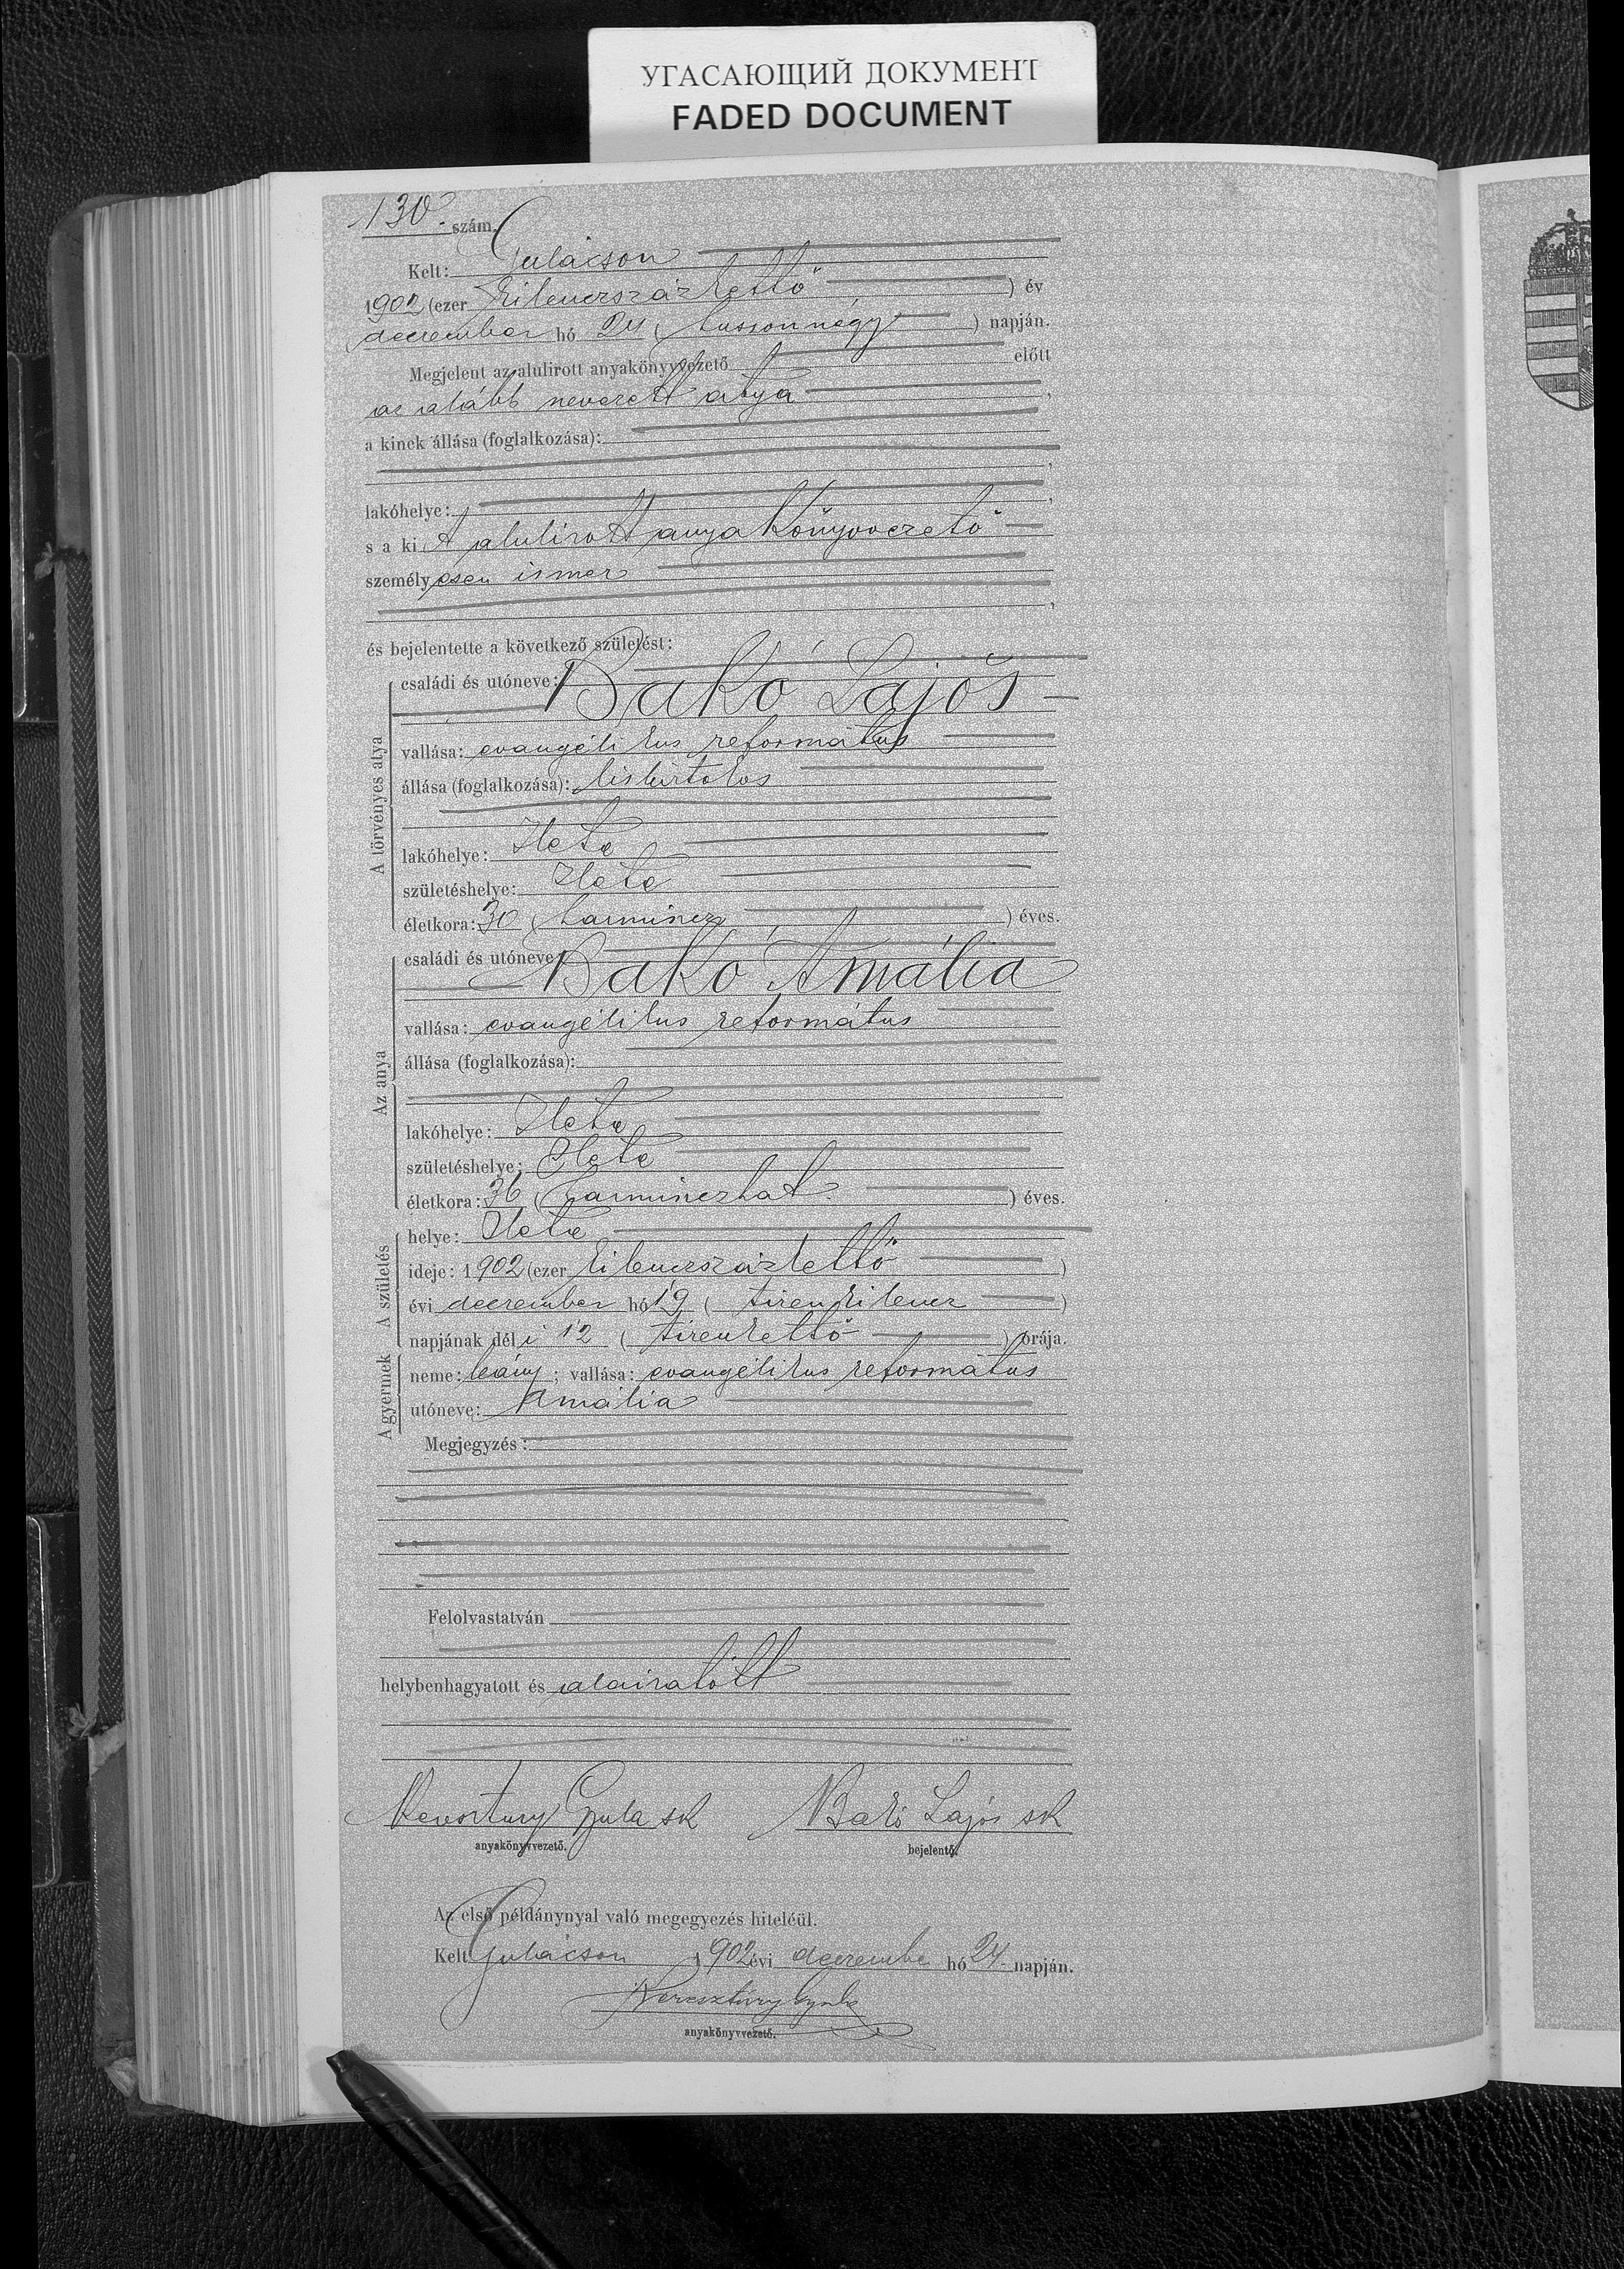 УГАСАЮЩИЙ ДОКУМЕНТ
FADED DOCUMENT
130. szám.
Kelt: Gulácson
1902 (ezer kilenczszázkettő ) év
deczember hó 24 ( huszonnégy ) napján.
Megjelent az alulirott anyakönyvvezető előtt
az alább nevezett atya ,
a kinek állása (foglalkozása):
,
lakóhelye: ,
s a ki t alulirott anyakönyvvezető
személy esen ismer
,
és bejelentette a következő születést:
A törvényes atya
családi és utóneve: Bakó Lajos
vallása: evangélikus református
állása (foglalkozása): kisbirtokos
lakóhelye: Hete
születéshelye: Hete
életkora: 30 ( harmincz ) éves.
Az anya
családi és utóneve: Bakó Amália
vallása: evangélikus református
állása (foglalkozása):
lakóhelye: Hete
születéshelye: Hete
életkora: 36 ( harminczhat ) éves.
A születés
helye: Hete
ideje: 1902 (ezer kilenczszázkettő )
évi deczember hó 19 ( tizenkilencz )
napjának dél i 12 ( tizenkettő ) órája.
A gyermek
neme: leány ; vallása: evangélikus református
utóneve: Amália
Megjegyzés:
Felolvastatván
helybenhagyatott és aláiratott
Gyula sk Bakó Lajos sk
anyakönyvvezető. bejelentő.
Az első példánynyal való megegyezés hiteléül.
Kelt Gulácson 1902 évi deczembe hó 24 napján.
Keresztúry Gyula
anyakönyvvezető.